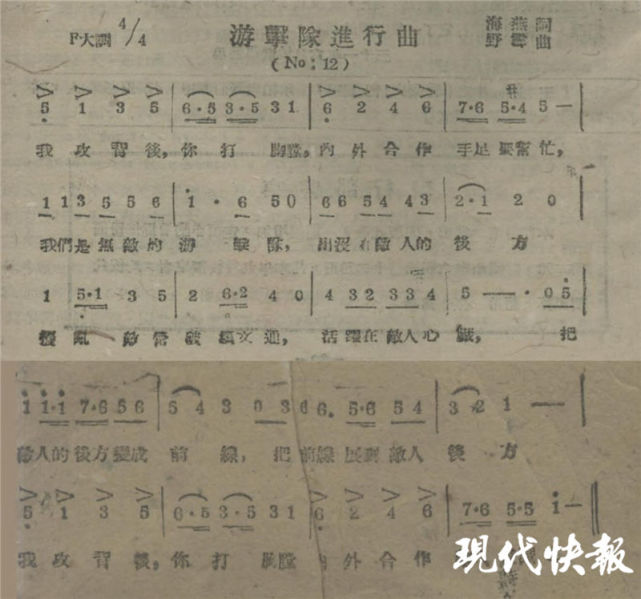 F大調 4/4 游擊隊進行曲 海燕詞
(No: 12) 野雩曲
5 1 3 5 | 6·5 3·5 31 | 6 2 4 6 | 7·6 5·4 5 —
我攻背後,你打胸膛,內外合作 手足要幫忙,
1 13 5 5 6 | 1 · 6 50 | 66 54 43 | 2·1 2 0
我們是無敵的游擊隊,出沒在敵人的後方
1 5·1 3 5 | 2 6·2 4 0 | 4 32 33 4 | 5 — · 05
擾亂敵營破壞交通,活躍在敵人心臟,把
1 1·1 7·6 56 | 5 4 3 03 | 66. 5·6 54 | 3 2 1 —
敵人的後方變成前線,把前線展到敵人後方
5 1 3 5 | 6·5 3·5 31 | 6 2 4 6 | 7·6 5·5 1 —
我攻背後,你打胸膛內外合作
現代快報